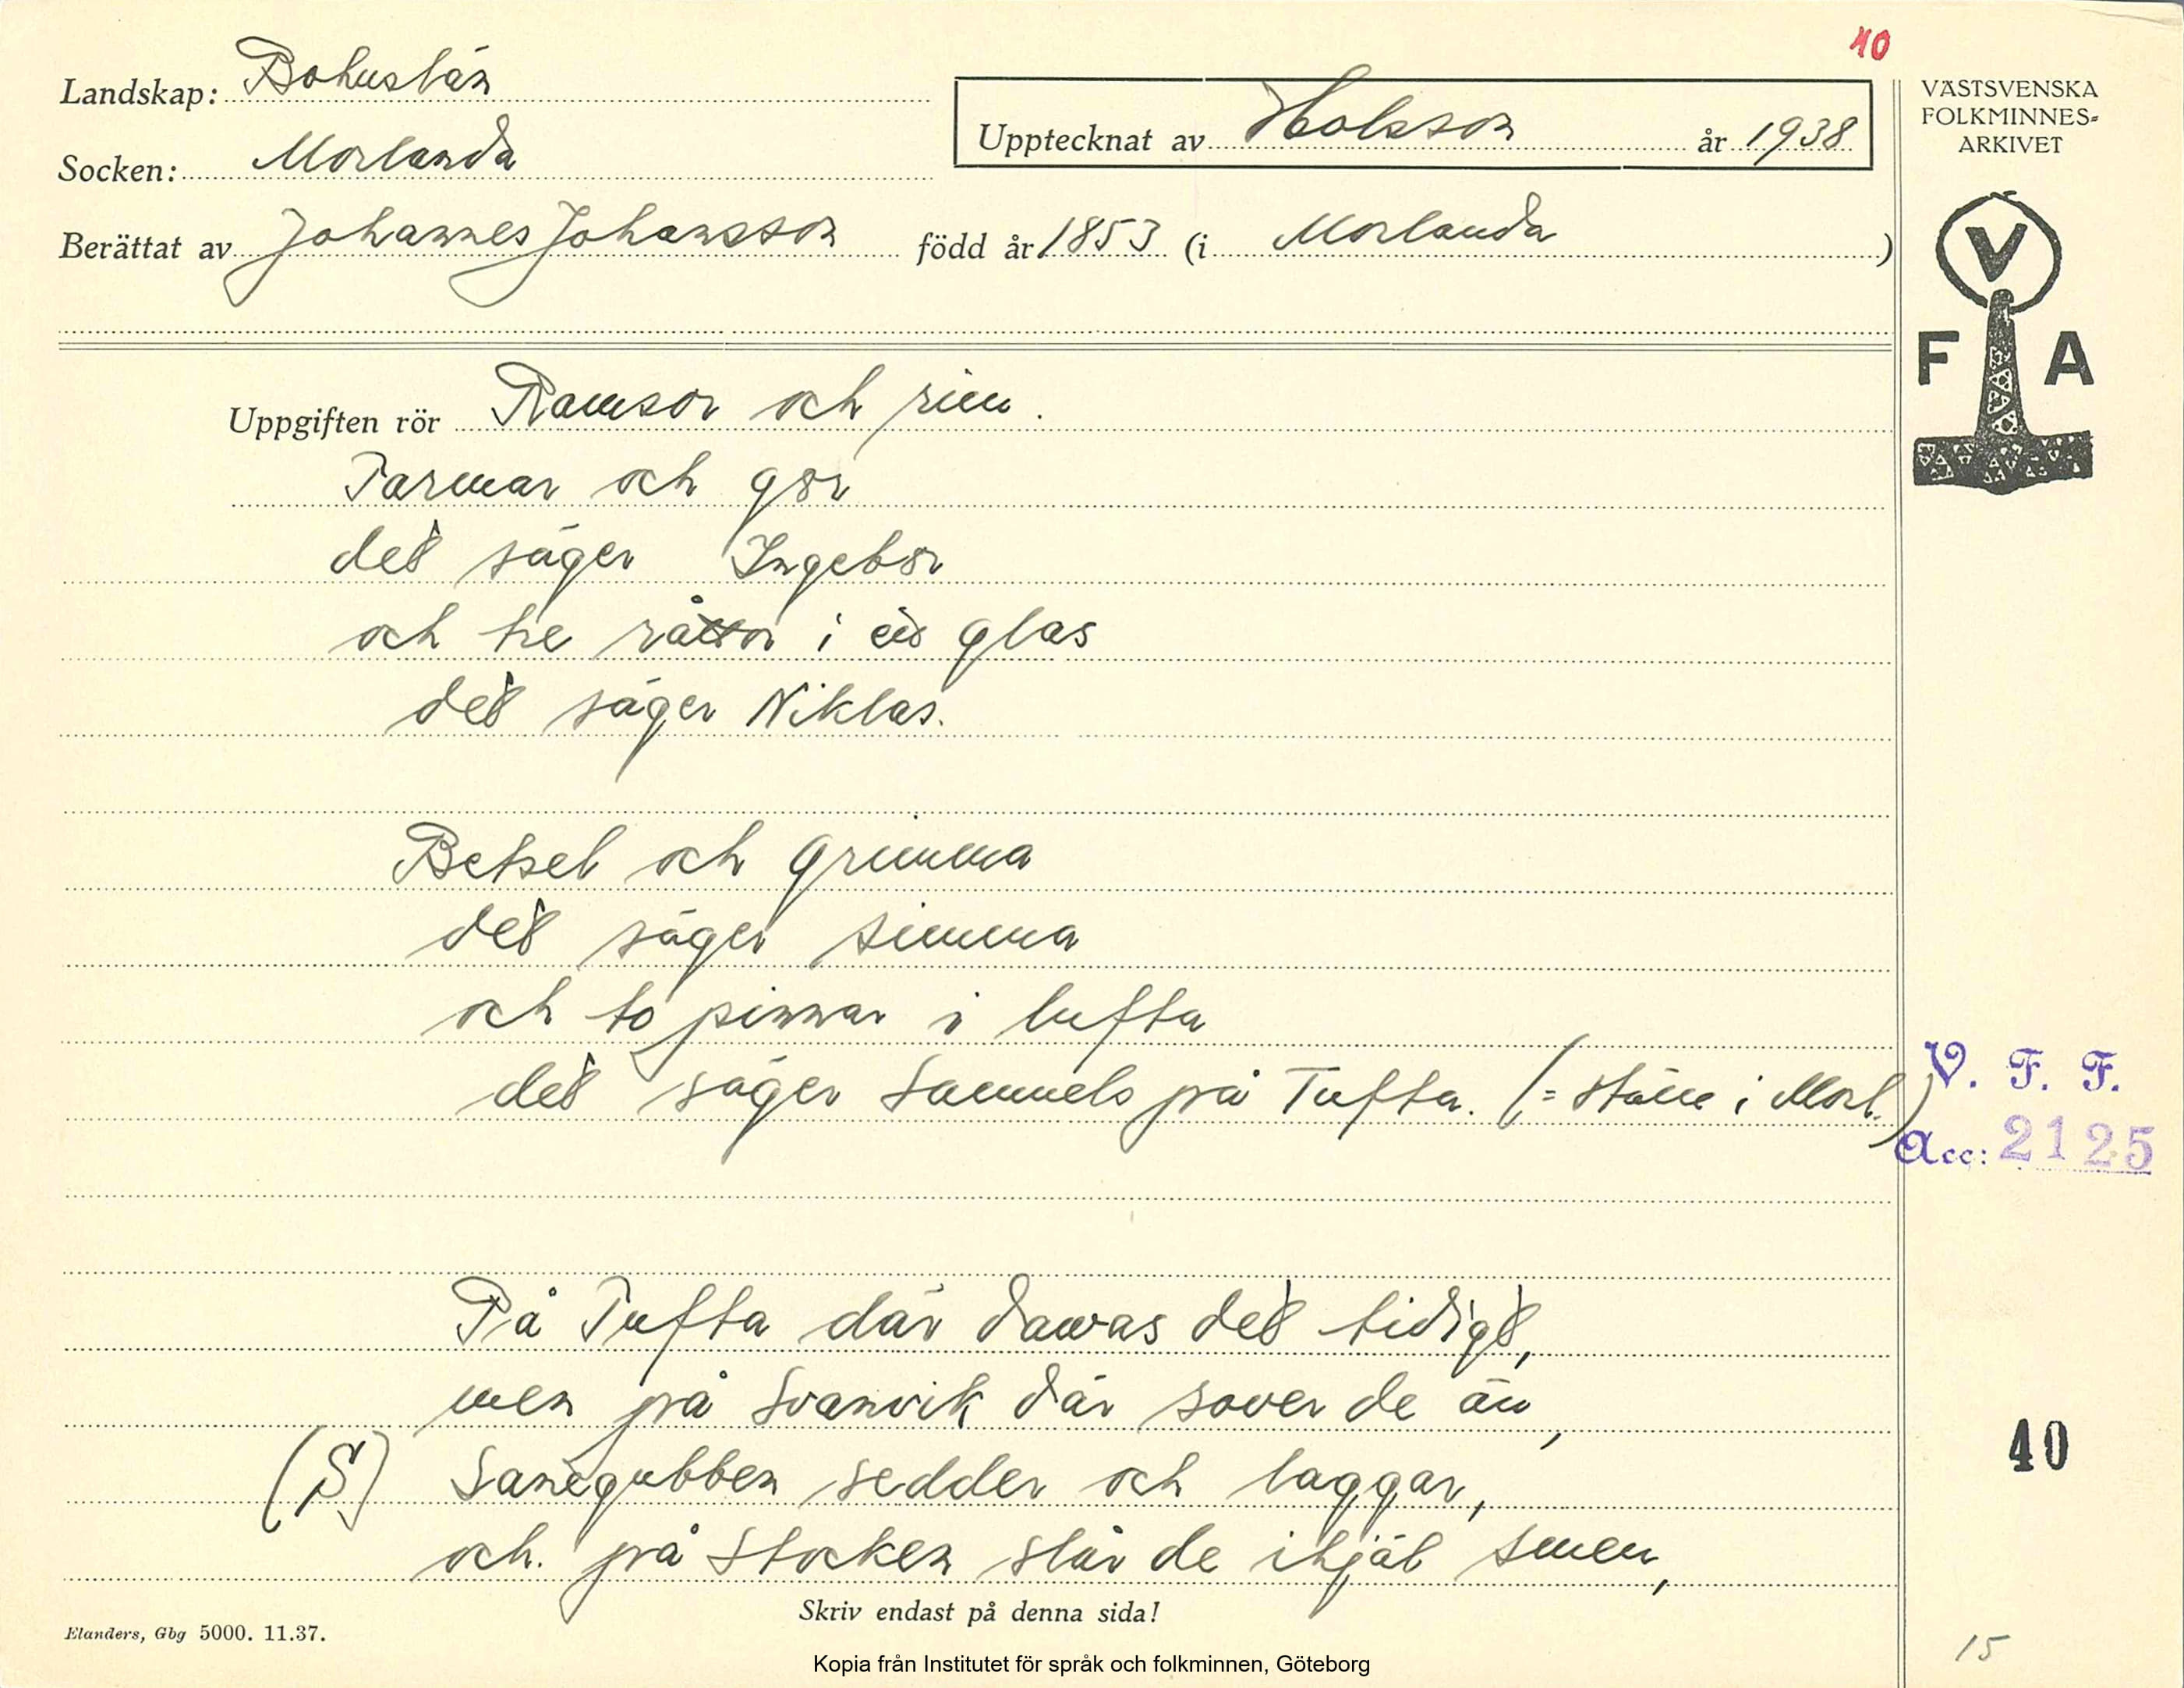 40
Landskap: Bohuslän
Socken: Morlanda
Upptecknat av Holsson år 1938
Berättat av Johannes Johansson född år 1853 (i Morlanda)
VÄSTSVENSKA
FOLKMINNES-
ARKIVET
V
F A
Uppgiften rör Ramsor och rim.
Tarmar och gör
det säger Ingebör
och tre råttor i ett glas
det säger Niklas.
Betsel och grimma
det säger simma
och to pinnar i lufta
det säger Samuels på Tufta. (= ställe i Morl.)
V. F. F.
Acc: 2125
På Tufta där dawas det tidigt,
men på Svanvik där sover de än,
(S) Sanegubben sedder och laggar,
och på Stocken slår de ihjäl smen,
40
Skriv endast på denna sida!
Elanders, Gbg 5000. 11.37.
15
Kopia från Institutet för språk och folkminnen, Göteborg